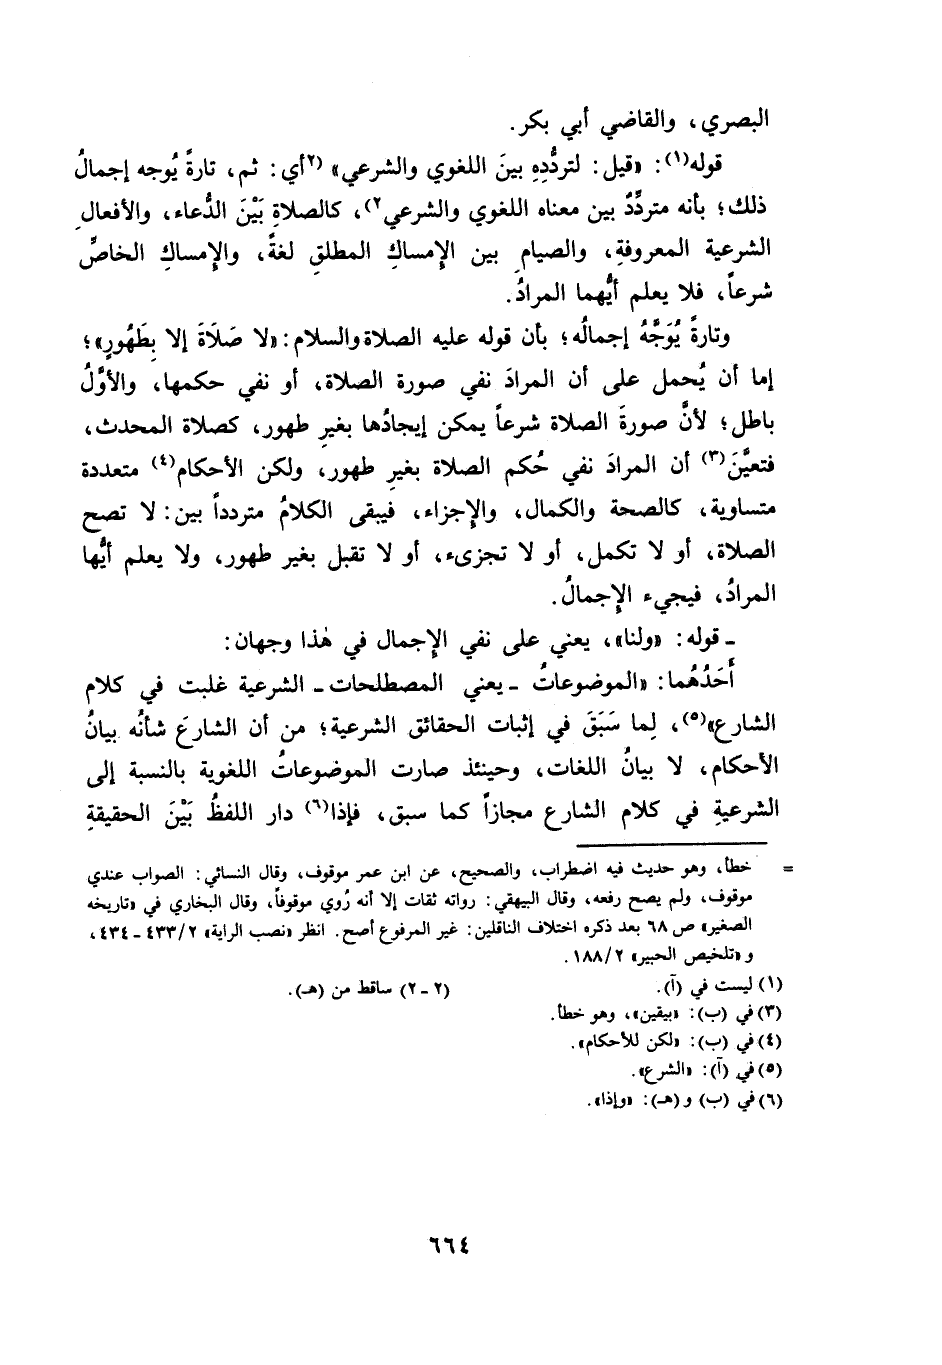 البصري، والقاضي أبي بكر.
قوله(١): «قيل: لتردُّدِهِ بينَ اللغوي والشرعي» (٢أي: ثم، تارةً يُوجه إجمالُ
ذلك؛ بأنه متردِّدٌ بين معناه اللغوي والشرعي٢)، كالصلاةِ بَيْنَ الدُّعاء، والأفعالِ
الشرعية المعروفةِ، والصيامِ بين الإِمساكِ المطلقِ لغةً، والإِمساكِ الخاصِّ
شرعاً، فلا يعلم أيُّهما المرادُ.
وتارةً يُوَجَّهُ إجمالُه؛ بأن قوله عليه الصلاة والسلام: «لا صَلَاةَ إلا بِطَهُورٍ»؛
إما أن يُحمل على أن المرادَ نفي صورة الصلاة، أو نفي حكمها، والأوَّلُ
باطل؛ لأنَّ صورةَ الصلاة شرعاً يمكن إيجادُها بغيرِ طهور، كصلاة المحدث،
فتعيَّنَ(٣) أن المرادَ نفي حُكم الصلاة بغيرِ طهور، ولكن الأحكام(٤) متعددة
متساوية، كالصحة والكمال، والإِجزاء، فيبقى الكلامُ متردداً بين: لا تصح
الصلاة، أو لا تكمل، أو لا تجزىء، أو لا تقبل بغير طهور، ولا يعلم أيُّها
المرادُ، فيجيء الإِجمالُ.
ـ قوله: «ولنا»، يعني على نفي الإِجمال في هٰذا وجهان:
أَحَدُهُما: «الموضوعاتُ ـ يعني المصطلحات ـ الشرعية غلبت في كلام
الشارع»(٥)، لِما سَبَقَ في إثبات الحقائق الشرعية؛ من أن الشارعَ شأنُه بيانُ
الأحكام، لا بيانُ اللغات، وحينئذ صارت الموضوعاتُ اللغوية بالنسبة إلى
الشرعيةِ في كلام الشارع مجازاً كما سبق، فإذا(٦) دار اللفظُ بَيْنَ الحقيقةِ
= خطأ، وهو حديث فيه اضطراب، والصحيح، عن ابن عمر موقوف، وقال النسائي: الصواب عندي
موقوف، ولم يصح رفعه، وقال البيهقي: رواته ثقات إلا أنه رُوي موقوفاً، وقال البخاري في «تاريخه
الصغير» ص ٦٨ بعد ذكره اختلاف الناقلين: غير المرفوع أصح. انظر «نصب الراية» ٤٣٣/٢ ـ ٤٣٤،
و «تلخيص الحبير» ١٨٨/٢.
(١) ليست في (آ). (٢ ـ ٢) ساقط من (هـ).
(٣) في (ب): «بيقين»، وهو خطأ.
(٤) في (ب): «لكن للأحكام».
(٥) في (آ): «الشرع».
(٦) في (ب) و (هـ): «وإذا».
٦٦٤